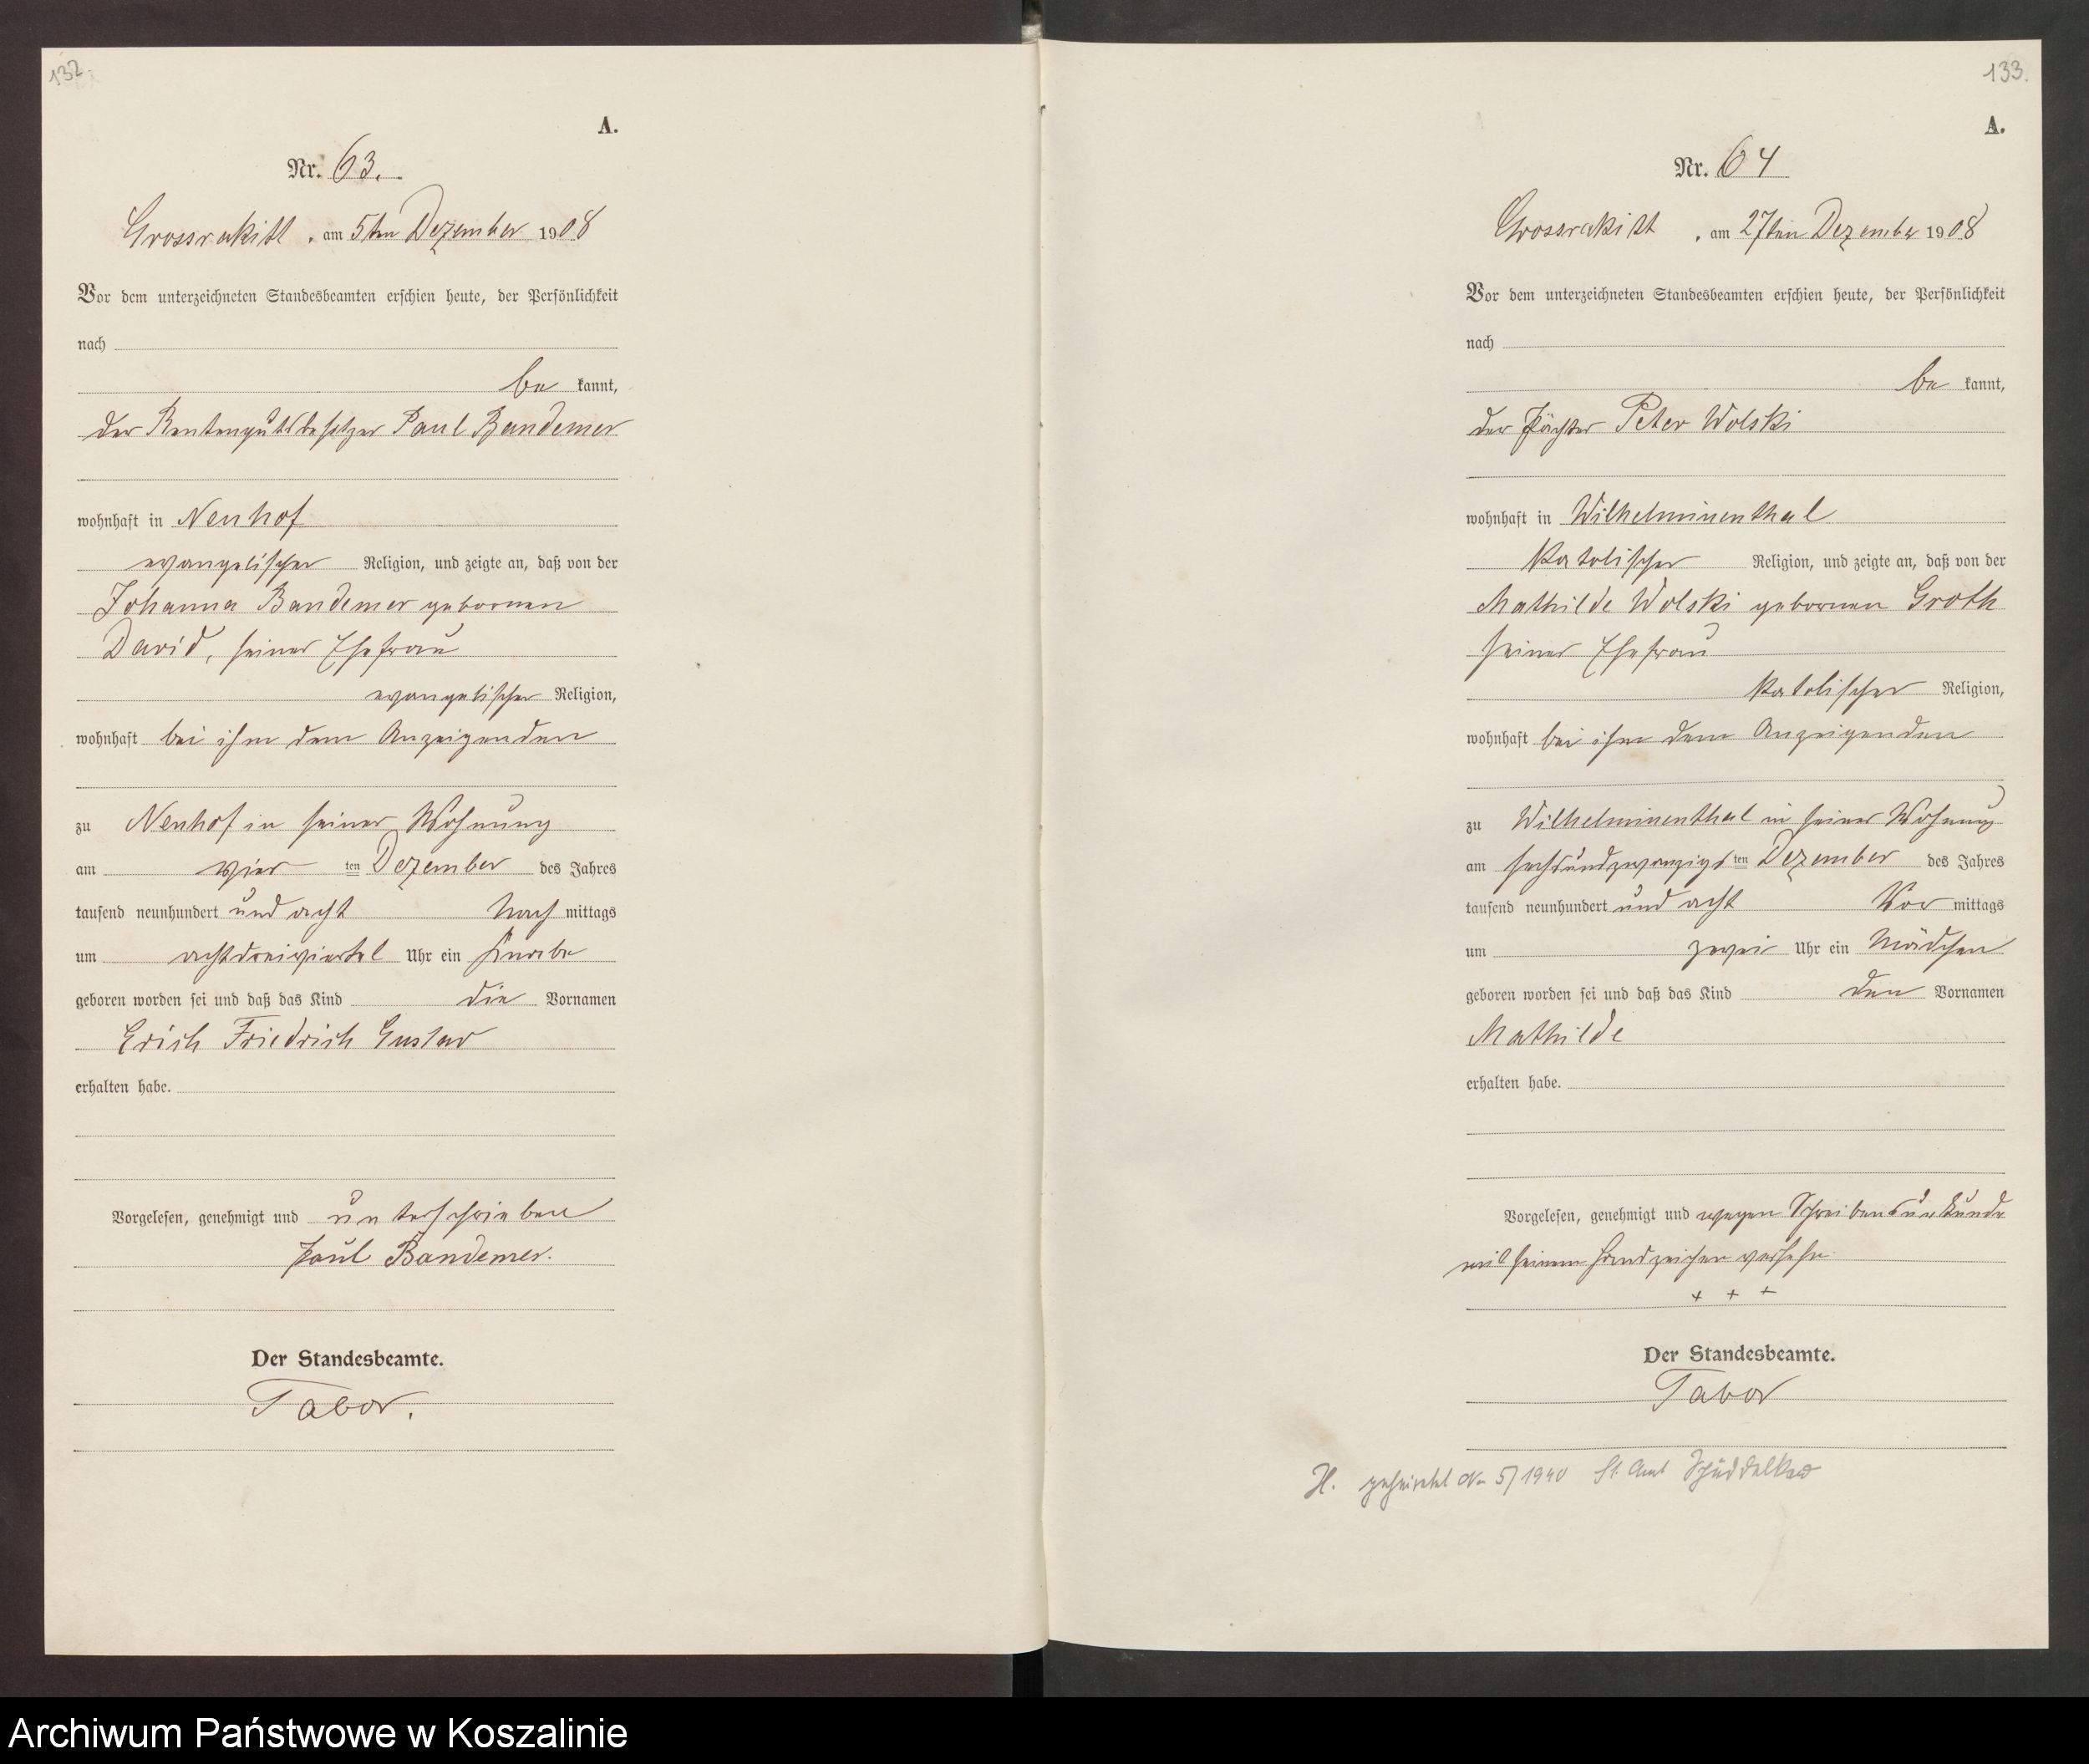 132.
A.
Nr. 63.
Grossrakitt, am 5ten Dezember 1908
Vor dem unterzeichneten Standesbeamten erschien heute, der Persönlichkeit
nach
be kannt,
der Rentengutsbesitzer Paul Bandemer
wohnhaft in Neuhof
evangelischer Religion, und zeigte an, daß von der
Johanna Bandemer gebornen
David, seiner Ehefrau
evangelischer Religion,
wohnhaft bei ihm dem Anzeigenden
zu Neuhof in seiner Wohnung
am vier ten Dezember des Jahres
tausend neunhundert und acht Nach mittags
um achtdreiviertel Uhr ein Knabe
geboren worden sei und daß das Kind die Vornamen
Erich Friedrich Gustav
erhalten habe.
Vorgelesen, genehmigt und unterschrieben
Paul Bandemer.
Der Standesbeamte.
Tabor.
133.
A.
Nr. 64
Grossrakitt, am 27ten Dezember 1908
Vor dem unterzeichneten Standesbeamten erschien heute, der Persönlichkeit
nach
be kannt,
der Pächter Peter Wolski
wohnhaft in Wilhelminenthal
katolischer Religion, und zeigte an, daß von der
Mathilde Wolski gebornen Groth
seiner Ehefrau
katolischer Religion,
wohnhaft bei ihm dem Anzeigenden
zu Wilhelminenthal in seiner Wohnung
am sechsundzwanzigs ten Dezember des Jahres
tausend neunhundert und acht Vor mittags
um zwei Uhr ein Mädchen
geboren worden sei und daß das Kind den Vornamen
Mathilde
erhalten habe.
Vorgelesen, genehmigt und wegen Schreibensunkunde
mit seinem Handzeichen versehn.
+ + +
Der Standesbeamte.
Tabor
H. geheiratet No 5/1940 St. Amt Schüddelkau
Archiwum Państwowe w Koszalinie